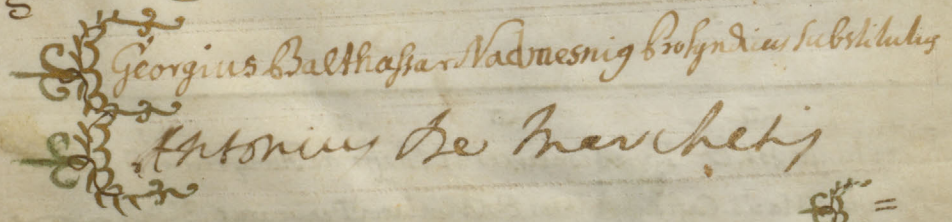 Georgius Balthassar Nadmesnig Prosyndicus substitutus
Antonius De Marchetis